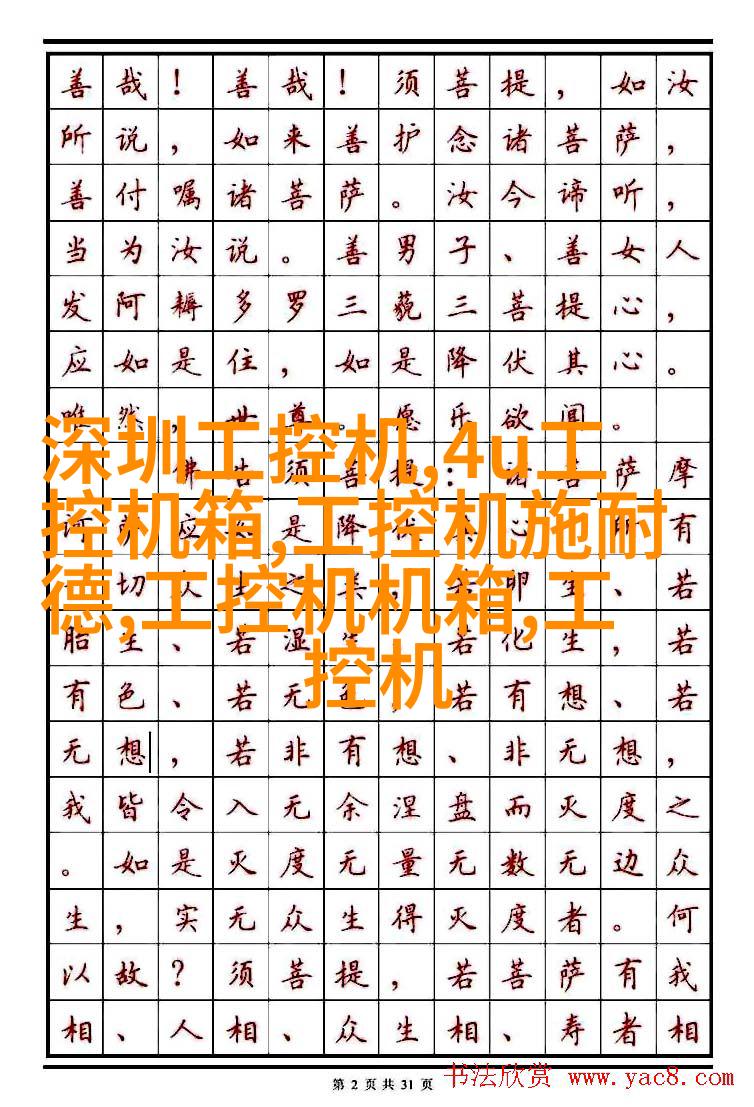 善哉！善哉！须菩提，如汝
所说，如来善护念诸菩萨，
善付嘱诸菩萨。汝今谛听，
当为汝说。善男子、善女人
发阿耨多罗三藐三菩提心，
应如是住，如是降伏其心。
唯然，世尊。愿乐欲闻。
深圳工控机,4u工
佛告须菩提：诸菩萨摩
控机箱,工控机施耐
应是降伏其心所有
德,工控机机箱,工
切众生之类，若卵生、若
胎生、若湿生、若化生，若
控机
有色、若无色，若有想、若
无想，若非有想、非无想，
我皆令入无余涅盘而灭度之
。如是灭度无量无数无边众
生，实无众生得灭度者。何
以故？须菩提，若菩萨有我
相、人相、众生相、寿者相
第 2 页共 31 页
书法欣赏 www.yac8.com